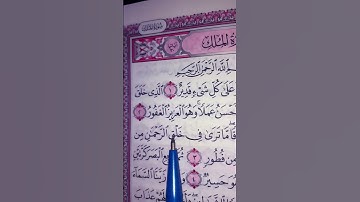 سورة الملك
رة الملك
م الله الرحمن الرحيم
على كل شيء قدير ١ الذي خلق
حسن عملا وهو العزيز الغفور ٢
ما ترى في خلق الرحمن من
من فطور ٣ ثم البصر كرتين
و حسير ٤ زينا السماء
عذاب